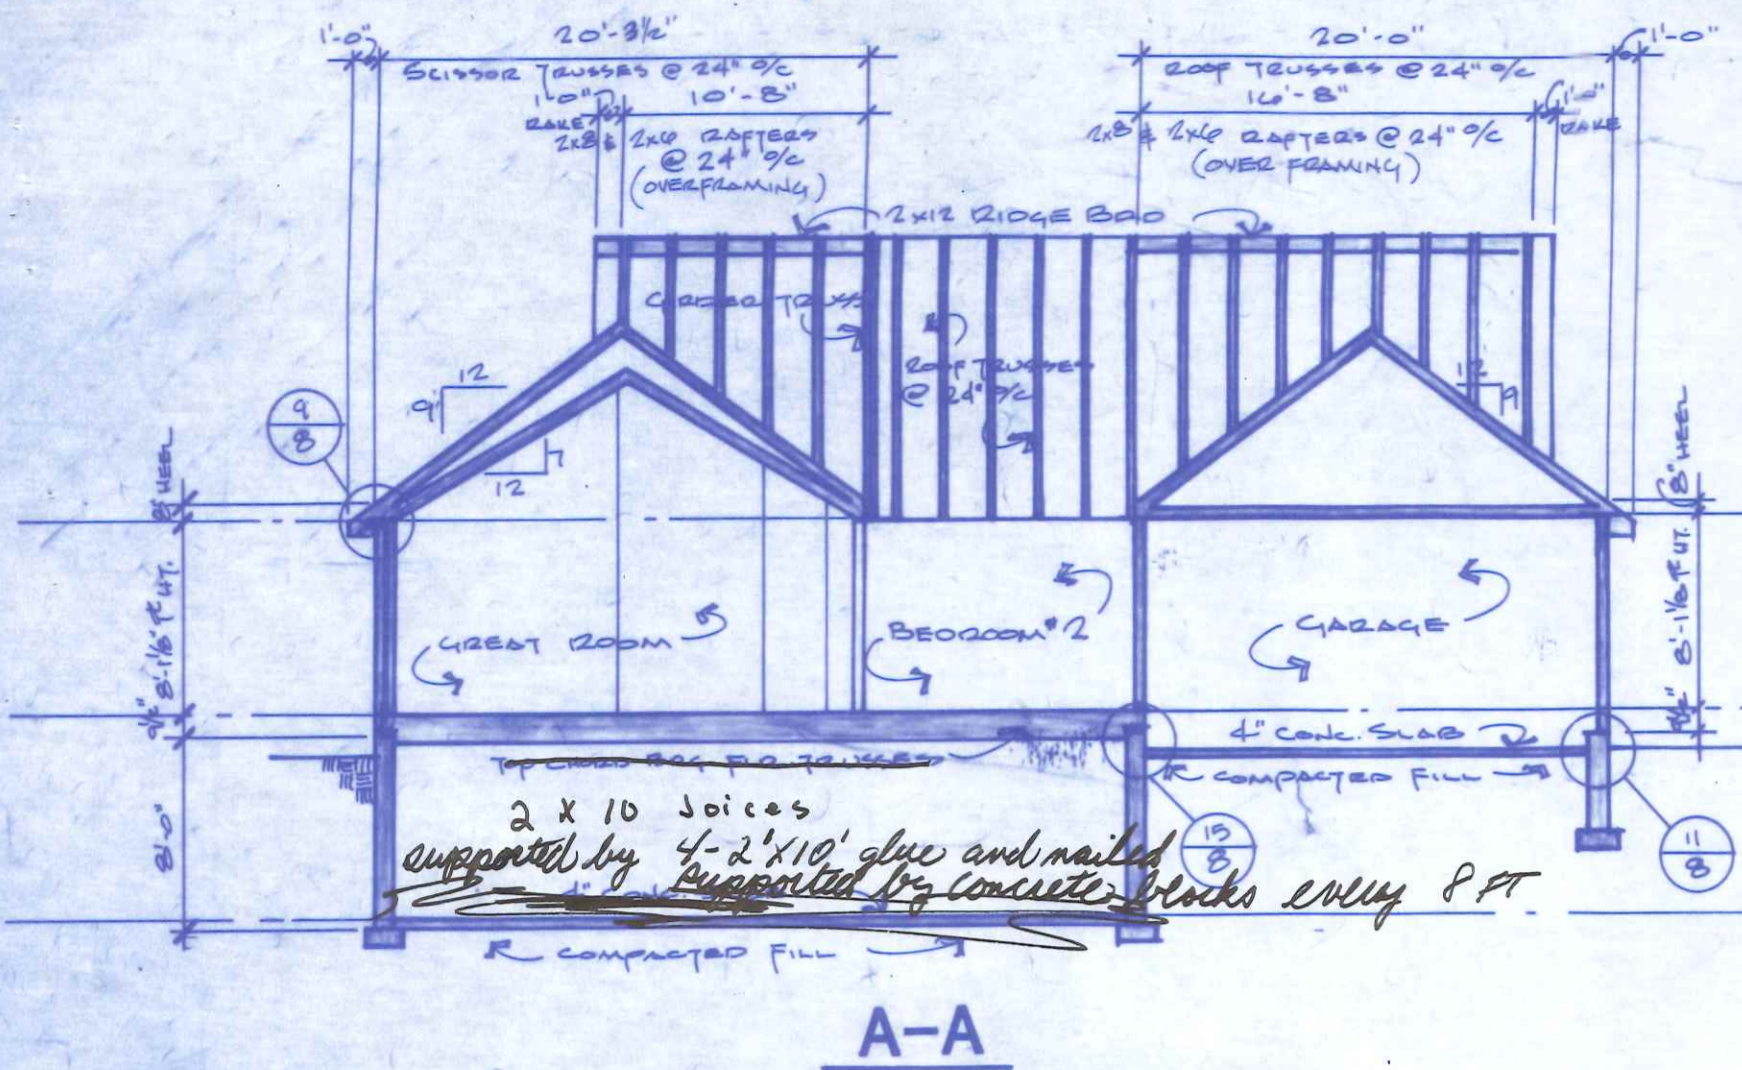 1'-0"
20'-3½"
20'-0"
1'-0"
SCISSOR TRUSSES @ 24" o/c
ROOF TRUSSES @ 24" o/c
1'-0"
RAKE
10'-8"
16'-8"
1'-0"
RAKE
2x8 & 2x6 RAFTERS
@ 24" o/c
(OVERFRAMING)
2x8 & 2x6 RAFTERS @ 24" o/c
(OVER FRAMING)
2x12 RIDGE BRD
GIRDER TRUSS
ROOF TRUSSES
@ 24" o/c
12
9
12
9
7
12
9
8
8" HEEL
8'-1⅛" PL HT.
9½"
8'-0"
8" HEEL
8'-1⅛" PL HT.
9½"
GREAT ROOM
BEDROOM #2
GARAGE
4" CONC. SLAB
COMPACTED FILL
TOP CHORD BRG FLR TRUSSES
2 X 10 Joices
supported by 4-2'X10' glue and nailed
supported by concrete blocks every 8 FT
15
8
11
8
4"
COMPACTED FILL
A-A